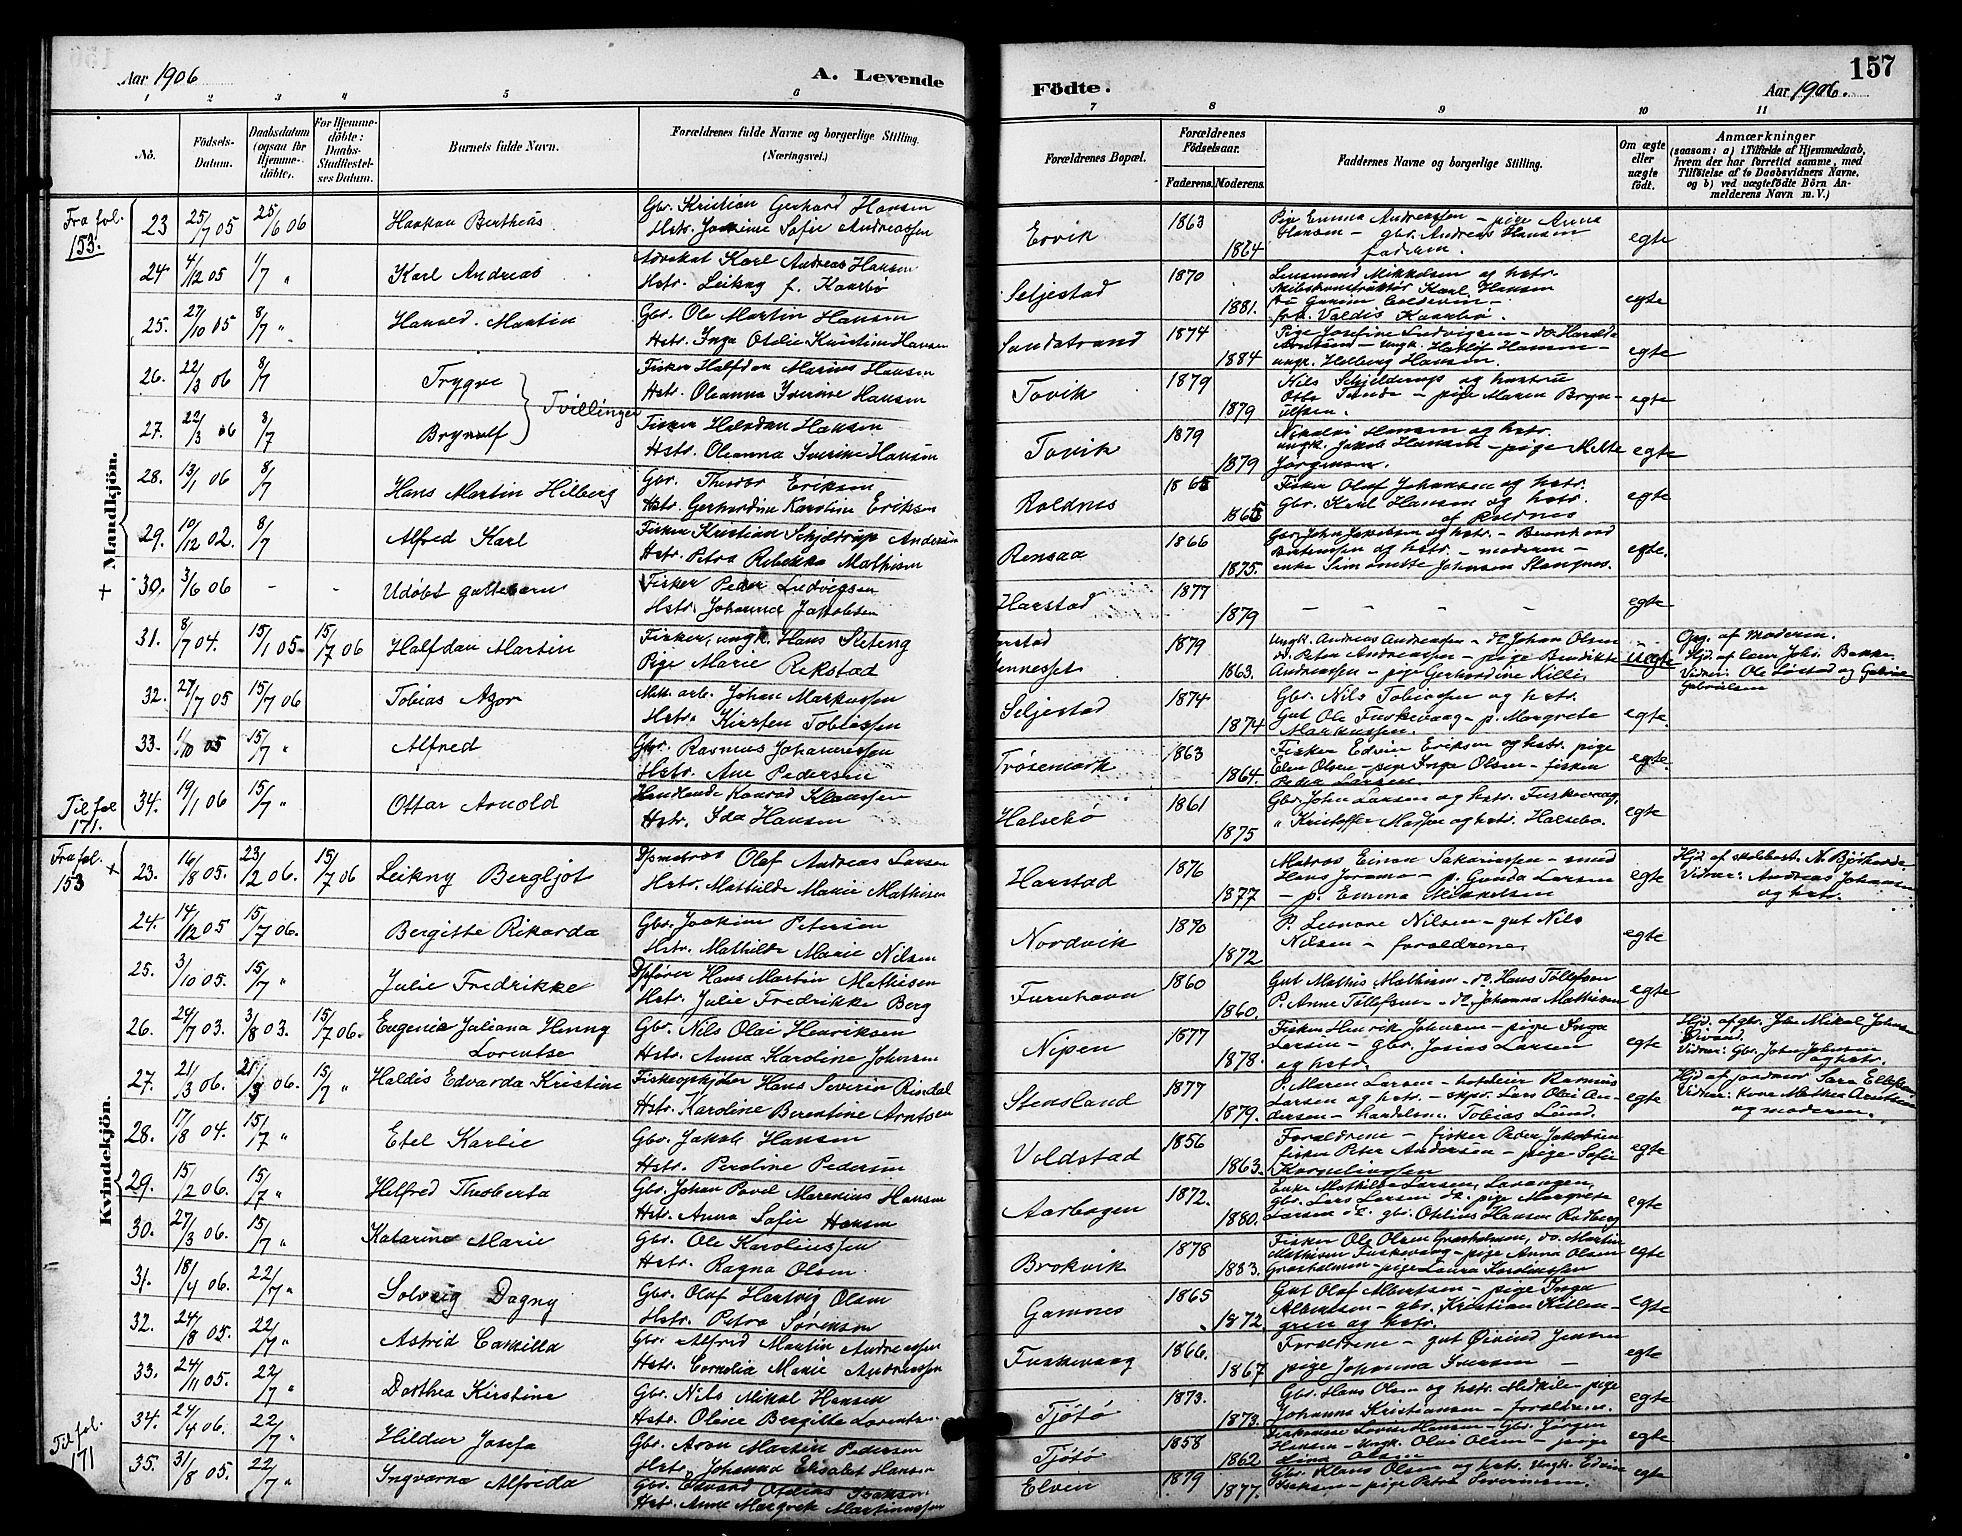 Aar 1906
A. Levende
Födte.
Aar 1906.
157
1 2 3 4 5 6 7 8 9 10 11
No.
Födsels-
Datum.
Daabsdatum
(ogsaa for
Hjemme-
döbte).
For Hjemme-
döbte:
Daabs-
Stadfæstel-
ses Datum.
Barnets fulde Navn.
Forældrenes fulde Navne og borgerlige Stilling.
(Næringsvei.)
Forældrenes Bopæl.
Forældrenes
Födselsaar.
Faderens. Moderens.
Faddernes Navne og borgerlige Stilling.
Om ægte
eller
uægte
født.
Anmærkninger
(saasom: a) i Tilfælde af Hjemmedaab,
hvem der har forrettet samme, med
Tilföielse af to Daabsvidners Navne,
og b) ved uægtefödte Börn An-
melderens Navn m. V.)
Fra fol.
153.
Mandkjön.
23 25/7 05 25/6 06 Haakon Bertheus
Gbr. Kristian Gerhard Hansen
Hstr. Joakime Sofie Andreassen
Ervik 1863 1864
Pige Emma Andreassen – pige Anna
Hansen – gbr. Andreas Hansen
faderen.
egte
24 4/12 05 1/7 " Karl Andreas
Advokat Karl Andreas Hansen
Hstr. Leikny f. Kaarbø
Seljestad 1870 1881.
Lensmand Mikkelsen og hstr.
Skibskonstruktør Karl Hansen
frk. Valdis Kaarbø.
egte
25. 27/10 05 8/7 " Martin
Gbr. Ole Martin Hansen
Hstr. Inga Otelie Kristine Hansen
Sandstrand 1874 1884
Pige Josefine Ludvigsen – do. Haralda
Arntsen – ungk. Hansen –
ungk. Helberg Hansen.
egte
26. 22/3 06 8/7 Trygve
Tvillinger
Fisker Halfdan Marius Hansen
Hstr. Oleanna Sverine Hansen
Tovik 1879 1879
Nils Schjelderup og hustru
Otto – pige Maren Bryn-
ulfsen.
egte
27. 22/3 06 8/7 Brynulf
Fisker Halfdan Hansen
Hstr. Oleanna Sverine Hansen
Tovik 1879 1879
Nikolai Hansen og hstr.
ungk. Jakob Hansen – pige Mette
Jørgensen.
egte
28. 13/1 06 8/7 Hans Martin Hilberg
Gbr. Theodor Eriksen
Hstr. Gerhardine Karoline Eriksen
Roldnes 1865 1865
Fisker Olaf Johansen og hstr.
Gbr. Karl Hansen og hstr.
af Roldnes
egte
29. 10/12 02. 8/7 Alfred Karl
Fisker Kristian Schjeldrup Andersen
Hstr. Petra Rebekka Mathisen
Rensaa 1866 1875.
Gbr. John Jakobsen og hstr. – Bernhard
Bertensen og hstr. – moderen –
enke Johnsen Stangnes.
egte.
30. 3/6 06 - - Udøbt guttebarn
Fisker Peder Ludvigsen
Hstr. Johanna Jakobsen
Harstad 1877 1879
- - - -
egte
31. 8/7 04. 15/1 05 15/7 06 Halfdan Martin
Fisker, ungk. Hans Steteng
Pige Marie Rekstad
1879 1863.
Ungk. Andreas Andreassen – do. Johan Olsen
do. Peter Andreassen – pige Bendikte
Andreassen – pige Gerhardine Killi
Uegte
Opg. af moderen.
Hjd. af lærer Joh. Bakke
Vidner: Ole Løstad og Gabriel
Gabrielsen
32. 27/7 05 15/7 06 Tobias Azor
Mek. arb. Johan Markussen
Hstr. Kirsten Tobiassen
Seljestad 1874 1874
Gbr. Nils Tobiassen og hstr.
Gut Ole Fuskevaag – p. Margrete
Markussen.
egte.
33. 1/10 05 15/7 " Alfred
Gbr. Rasmus Johannessen
Hstr. Ane Pedersen
Trøsemark 1863 1864.
Fisker Edvin Eriksen og hstr. pige
Elen Olsen – pige Inga Olsen – fisker
Peder Larsen.
egte.
34. 19/1 06 15/7 " Ottar Arnold
Handlende Konrad Klaussen
Hstr. Ida Hansen
Halsebø 1861 1875
Gbr. John Larsen og hstr. Fuskevaag,
" Kristoffer og hstr. Halsebø.
egte
Til fol
171.
Fra fol.
153
Kvindekjön.
23. 16/8 05. 23/2 06. 15/7 06 Leikny Bergljot
Olaf Andreas Larsen
Hstr. Mathilde Marie Mathisen
Harstad 1876 1877
Matros Einar Sakariassen – smed
Hans – p. Gunda Larsen
– p. Emma Mikkelsen
egte
Hjd. af skolebest. N. Bjørkarde
Vidner: Andreas Johansen
og hstr.
24. 14/12 05 15/7 06. Bergitte Rikarda
Gbr. Joakim Petersen
Hstr. Mathilde Marie Nilsen
Nordvik 1870 1872
P. Leonore Nilsen – gut Nils
Nilsen – forældrene.
egte
25. 3/10 05. 15/7 " Julie Fredrikke
Hans Martin Mathisen
Hstr. Julie Fredrikke Berg
Furuhavn 1860 1860.
Gut Mathis Mathisen – do. Hans Tollefsen
P. Anne Tollefsen – do. Johanna Mathisen
egte
26. 24/7 03. 3/8 03. 15/7 06. Eugenie Juliana Henny
Lorentse
Gbr. Nils Olai Henriksen
Hstr. Anna Karoline Johnsen
Nipen 1877 1878.
Fisker Henrik Johnsen – pige Inga
Larsen – gbr. Josias Larsen
og hstr.
egte
Hjd. af gbr. Joh. Mikal Johnsen
Vidner: Gbr. John Johnsen
og hstr.
27. 21/3 06. 21/3 06. 15/7 " Haldis Edvarda Kristine
Fiskeopkjøber Hans Severin Rindal
Hstr. Karoline Berentine Arntsen
Stensland 1877 1879.
P. Maren Larsen – hoteleier Rasmus
Larsen og hstr. – skpr. Lars Olai An-
dersen – handelsm. Tobias Lund.
egte
Hjd. af jordmor Sara Ellefsen
Vidner: Kone Mathea Arntsen
og moderen.
28. 17/8 04. 15/7 " Etel Karlie
Gbr. Jakob Hansen
Hstr. Peroline Pedersen
Voldstad 1856 1863.
Forældrene – fisker Peder Jakobsen
fisker Peter Andersen – pige Sofie
Korneliussen
egte
29. 15/2 06. 15/7 " Helfred Theoberta
Gbr. Johan Povel Marenius Hansen
Hstr. Anna Sofie Hansen
Aarbogen 1872. 1880.
Enke Mathilde Larsen, Lavangen,
gbr. Lars Larsen do. pige Margrete
Larsen do. gbr. Otelius Hansen Rødberg
egte
30. 27/3 06. 15/7 " Katarine Marie
Gbr. Ole Karoliussen
Hstr. Ragna Olsen.
Brokvik 1878 1883.
Fisker Ole Olsen Grasholmen, do. Martin
Mathisen Fuskevaag – pige Anna Olsen
Grasholmen – pige Laura Karoliussen
egte
31. 18/4 06. 22/7 " Solveig Dagny
Gbr. Olaf Hartvig Olsen
Hstr. Petra Sørensen
Gamnes 1865 1872.
Gut Olaf Albertsen – pige Inga
Albertsen – gbr. Kristian Killen-
gren og hstr.
egte
32. 24/8 05. 22/7 " Astrid Camilla
Gbr. Alfred Martin Andreassen
Hstr. Cornelia Marie Andreassen
Fuskevaag 1866. 1867
Forældrene – gut Øivind Jensen
pige Johanna Iversen –
egte
33. 24/11 05. 22/7 " Dorthea Kirstine
Gbr. Nils Mikal Hansen
Hstr. Oline Bergitte Lorents..
Tjøtø 1873. 1873.
Gbr. Hans Olsen og hstr. Medkile – pige
Johanna Kristiansen – forældrene.
egte
34. 24/4 06. 22/7 " Hildur Josefa
Gbr. Aron Martin Pedersen
Hstr. Johanna Elisabet Hansen
Tjøtø 1858 1862
Hansen – Gbr. Jørgen
Hansen – ungk. Olai Olsen – pige
Lina Olsen
egte
35. 31/8 05. 22/7 " Ingvarna Alfreda
Gbr. Edvard Otelius Isaksen
Hstr. Anne Margrek Martinussen
Elven 1879 1877.
Gbr. Klaus Olsen og hstr. ungk. Edvin
Isaksen – pige Petra Severinsen.
egte
Til fol.
171